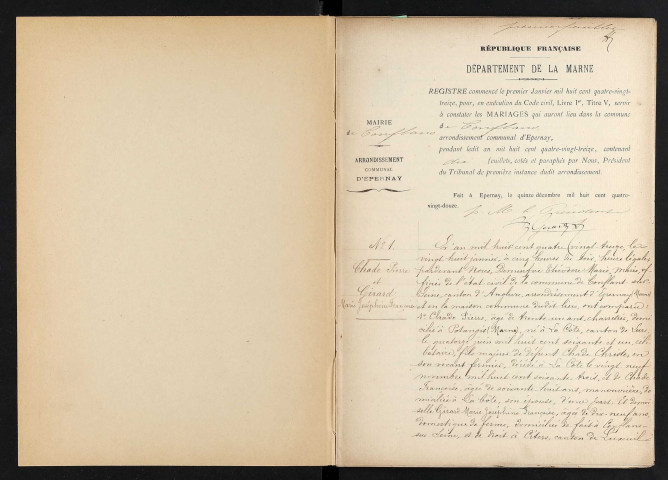 premier feuillet
RÉPUBLIQUE FRANÇAISE
DÉPARTEMENT DE LA MARNE
REGISTRE commencé le premier Janvier mil huit cent quatre-vingt-
treize, pour, en exécution du Code civil, Livre Ier, Titre V, servir
à constater les MARIAGES qui auront lieu dans la commune
de Conflans
arrondissement communal d'Epernay,
pendant ledit an mil huit cent quatre-vingt-treize, contenant
dix feuillets, cotés et paraphés par Nous, Président
du Tribunal de première instance dudit arrondissement
Fait à Epernay, le quinze décembre mil huit cent quatre-
vingt-douze.
MAIRIE
de Conflans
ARRONDISSEMENT
COMMUNAL
D'ÉPERNAY
No 1
Chade Pierre
et
Girard
Marie Joséphine Françoise
L'an mil huit cent quatre vingt treize, le
vingt huit janvier, à cinq heures du soir, heure légale,
pardevant Nous, Dominique Théodore Marie, Maire, of-
ficier de l'état civil de la commune de Conflans sur
Seine, canton d'Anglure, arrondissement d'Epernay (Marne)
et en la maison commune dudit lieu, ont comparu :
Mr Chade Pierre, âgé de trente un ans, charretier, domi-
cilié à Potangis (Marne), né à La Côte, canton de Lure,
le quatorze juin mil huit cent soixante et un, céli-
bataire, fils majeur de défunt Chade Christe, en
son vivant fermier, décédé à La Côte le vingt neuf
novembre mil huit cent soixante trois, et de Chade
Françoise, âgée de soixante huit ans, manouvrière, do-
miciliée à La Côte, son épouse, d'une part. Et demoi-
selle Girard Marie Joséphine Françoise, âgée de dix neuf ans,
domestique de ferme, domiciliée de fait à Conflans
sur Seine, et de droit à Citers, canton de Luxeuil